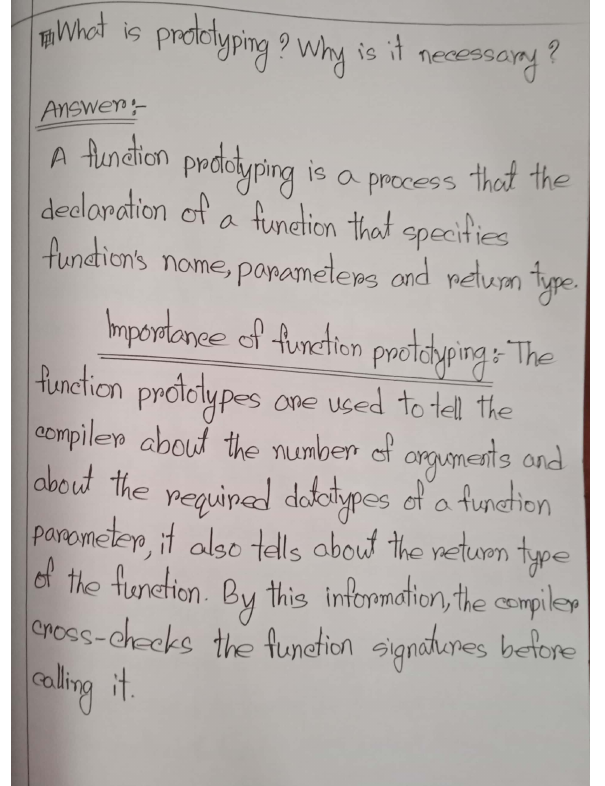 What is prototyping? Why is it necessary?
Answer:-
A function prototyping is a process that the
declaration of a function that specifies
function's name, parameters and return type.
Importance of function prototyping:- The
function prototypes are used to tell the
compiler about the number of arguments and
about the required datatypes of a function
parameter, it also tells about the return type
of the function. By this information, the compiler
cross-checks the function signatures before
calling it.